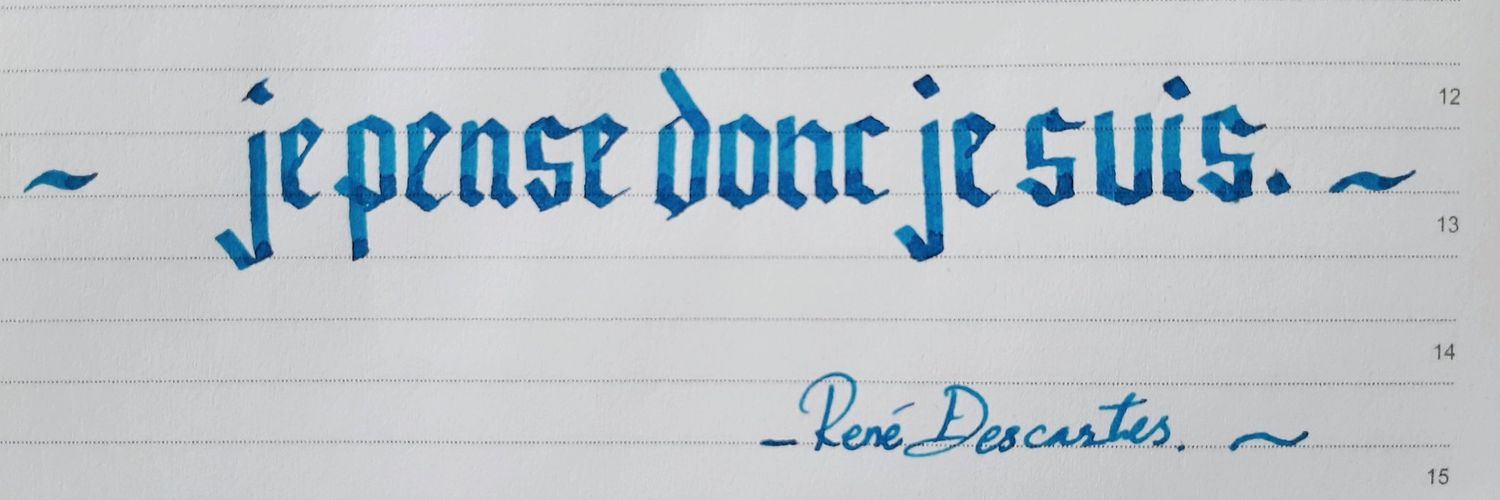 ~ je pense donc je suis. ~
12
13
14
– René Descartes. ~
15